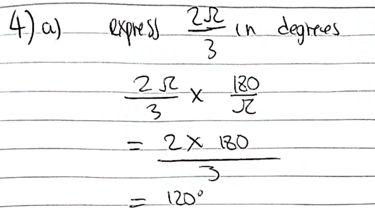 4) a) express 2π/3 in degrees
2π/3 × 180/π
= 2 × 180/3
= 120°